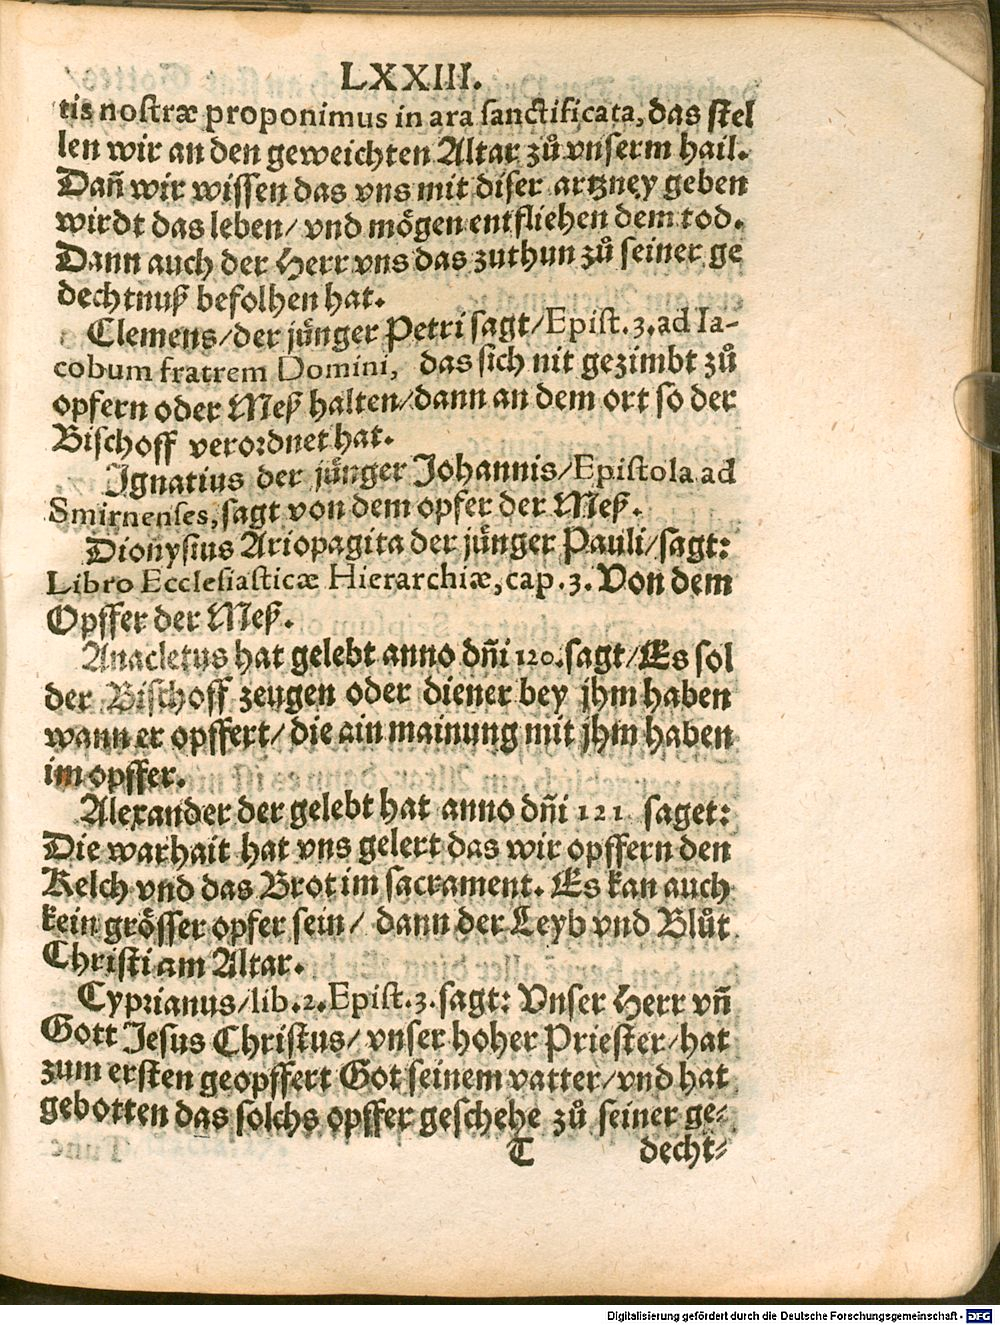 LXXIII.
tis nostræ proponimus in ara sanctificata, das stel
len wir an den geweichten Altar zů vnserm hail.
Dañ wir wissen das vns mit diser artzney geben
wirdt das leben/ vnd mögen entfliehen dem tod.
Dann auch der Herr vns das zuthun zů seiner ge
dechtnuß befolhen hat.
Clemens/der jünger Petri sagt/Epist.3.ad Ia-
cobum fratrem Domini, das sich nit gezimbt zů
opfern oder Meß halten/dann an dem ort so der
Bischoff verordnet hat.
Ignatius der jünger Johannis/Epistola ad
Smirnenses, sagt von dem opfer der Meß.
Dionysius Ariopagita der jünger Pauli/sagt:
Libro Ecclesiasticæ Hierarchiæ, cap.3. Von dem
Opffer der Meß.
Anacletus hat gelebt anno dñi 120.sagt/Es sol
der Bischoff zeugen oder diener bey jhm haben
wann er opffert/ die ain mainung mit jhm haben
im opffer.
Alexander der gelebt hat anno dñi 121 saget:
Die warhait hat vns gelert das wir opffern den
Kelch vnd das Brot im sacrament. Es kan auch
kein grösser opfer sein/ dann der Leyb vnd Blůt
Christi am Altar.
Cyprianus/lib.2.Epist.3.sagt: Vnser Herr vñ
Gott Jesus Christus/ vnser hoher Priester/hat
zum ersten geopffert Got seinem vatter/vnd hat
gebotten das solchs opffer geschehe zů seiner ge-
T decht-
Digitalisierung gefördert durch die Deutsche Forschungsgemeinschaft - DFG